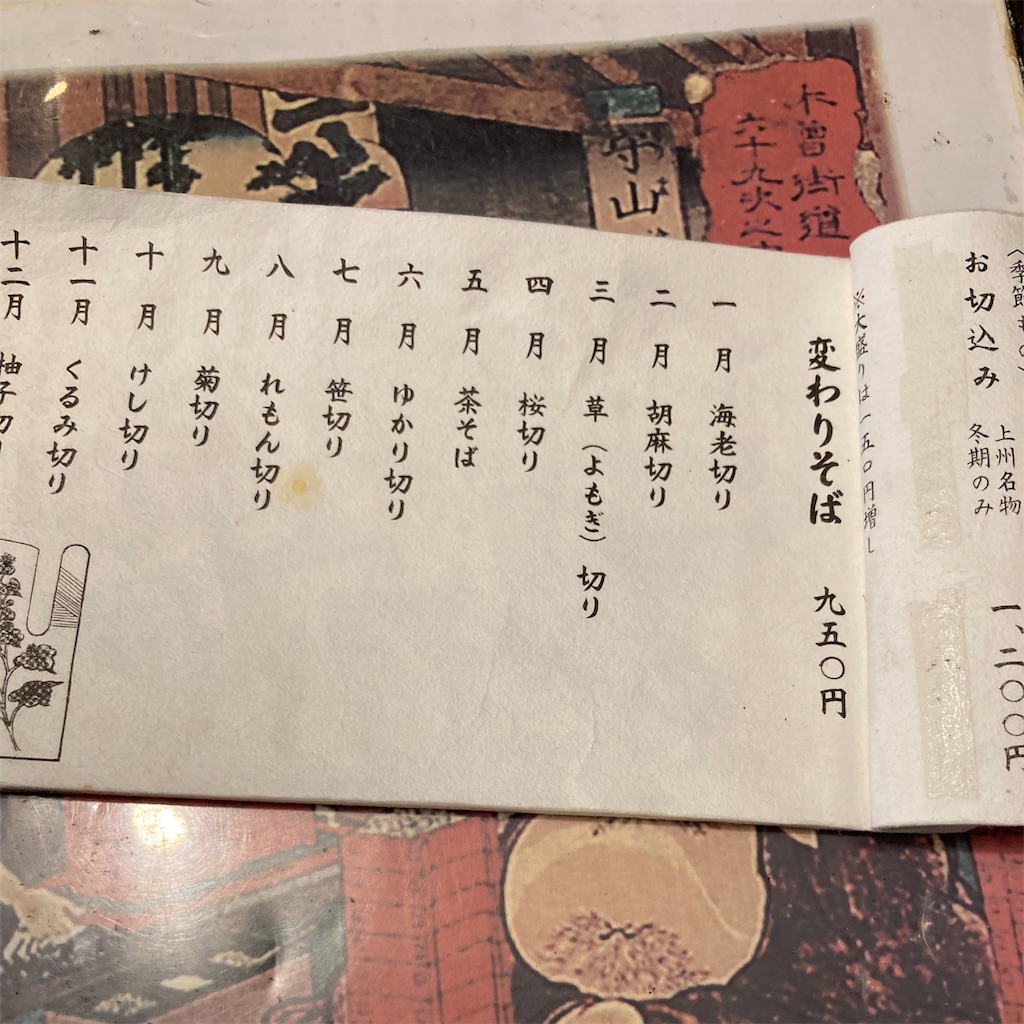 木曽街道
六十九次之
守山
お切込み
上州名物
冬期のみ
一、二〇〇円
※大盛りは一五〇円増し
変わりそば 九五〇円
一月 海老切り
二月 胡麻切り
三月 草(よもぎ)切り
四月 桜切り
五月 茶そば
六月 ゆかり切り
七月 笹切り
八月 れもん切り
九月 菊切り
十月 けし切り
十一月 くるみ切り
十二月 柚子切り